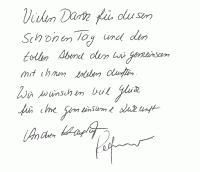 Vielen Dank für diesen
schönen Tag und den
tollen Abend den wir gemeinsam
mit ihnen erleben durften.
Wir wünschen viel Glück
für ihre gemeinsame Zukunft